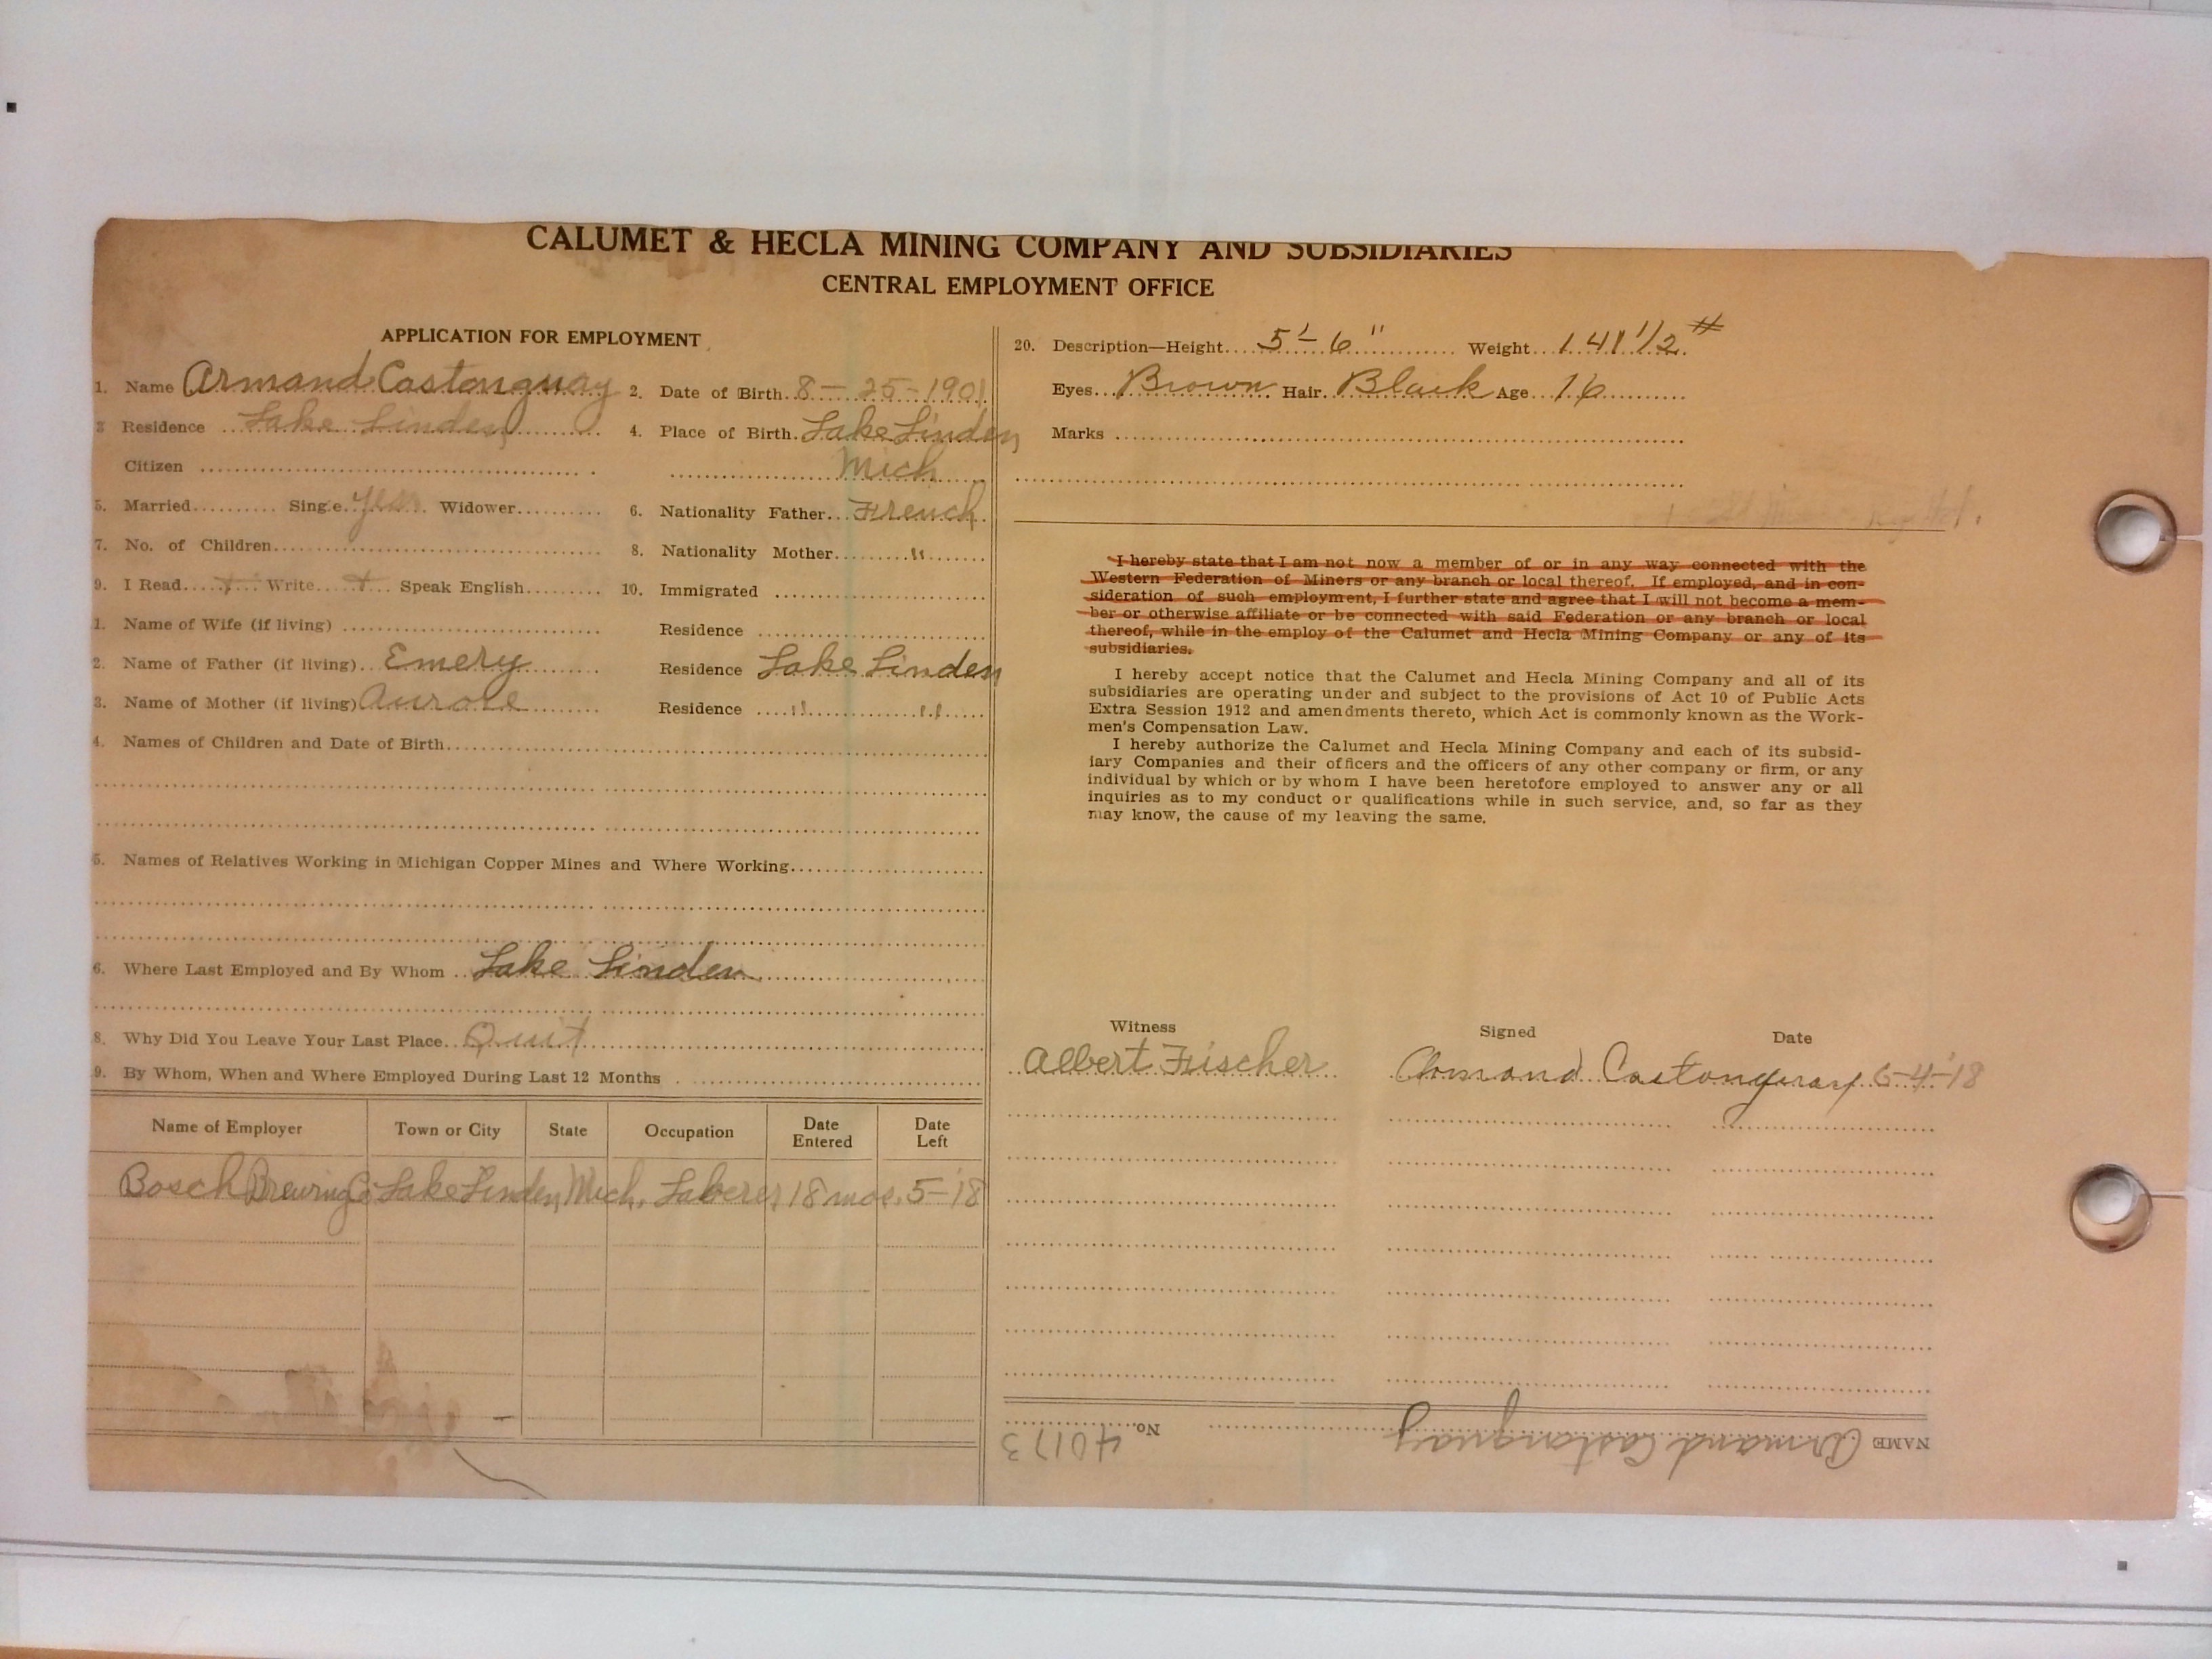 CALUMET & HECLA MINING COMPANY AND SUBSIDIARIES
CENTRAL EMPLOYMENT OFFICE
APPLICATION FOR EMPLOYMENT
1. Name Armand Castonguay 2. Date of Birth 8-25-1901
3 Residence Lake Linden 4. Place of Birth Lake Linden
Citizen Mich
5. Married Single Yes Widower 6. Nationality Father French
7. No. of Children 8. Nationality Mother "
9. I Read + Write + Speak English 10. Immigrated
1. Name of Wife (if living) Residence
2. Name of Father (if living) Emery Residence Lake Linden
3. Name of Mother (if living) Aurore Residence " "
4. Names of Children and Date of Birth
5. Names of Relatives Working in Michigan Copper Mines and Where Working
6. Where Last Employed and By Whom Lake Linden
8. Why Did You Leave Your Last Place Quit
9. By Whom, When and Where Employed During Last 12 Months
Name of Employer Town or City State Occupation Date Entered Date Left
Bosch Brewing Co Lake Linden, Mich. Laborer 18 mos. 5-'18
20. Description—Height 5'-6" Weight 141 1/2 #
Eyes Brown Hair Black Age 16
Marks
I hereby state that I am not now a member of or in any way connected with the
Western Federation of Miners or any branch or local thereof. If employed, and in con-
sideration of such employment, I further state and agree that I will not become a mem-
ber or otherwise affiliate or be connected with said Federation or any branch or local
thereof, while in the employ of the Calumet and Hecla Mining Company or any of its
subsidiaries.
I hereby accept notice that the Calumet and Hecla Mining Company and all of its
subsidiaries are operating under and subject to the provisions of Act 10 of Public Acts
Extra Session 1912 and amendments thereto, which Act is commonly known as the Work-
men's Compensation Law.
I hereby authorize the Calumet and Hecla Mining Company and each of its subsid-
iary Companies and their officers and the officers of any other company or firm, or any
individual by which or by whom I have been heretofore employed to answer any or all
inquiries as to my conduct or qualifications while in such service, and, so far as they
may know, the cause of my leaving the same.
Witness Signed Date
Albert Fischer Armand Castonguay 5-4-'18
NAME Armand Castonguay No. 40173